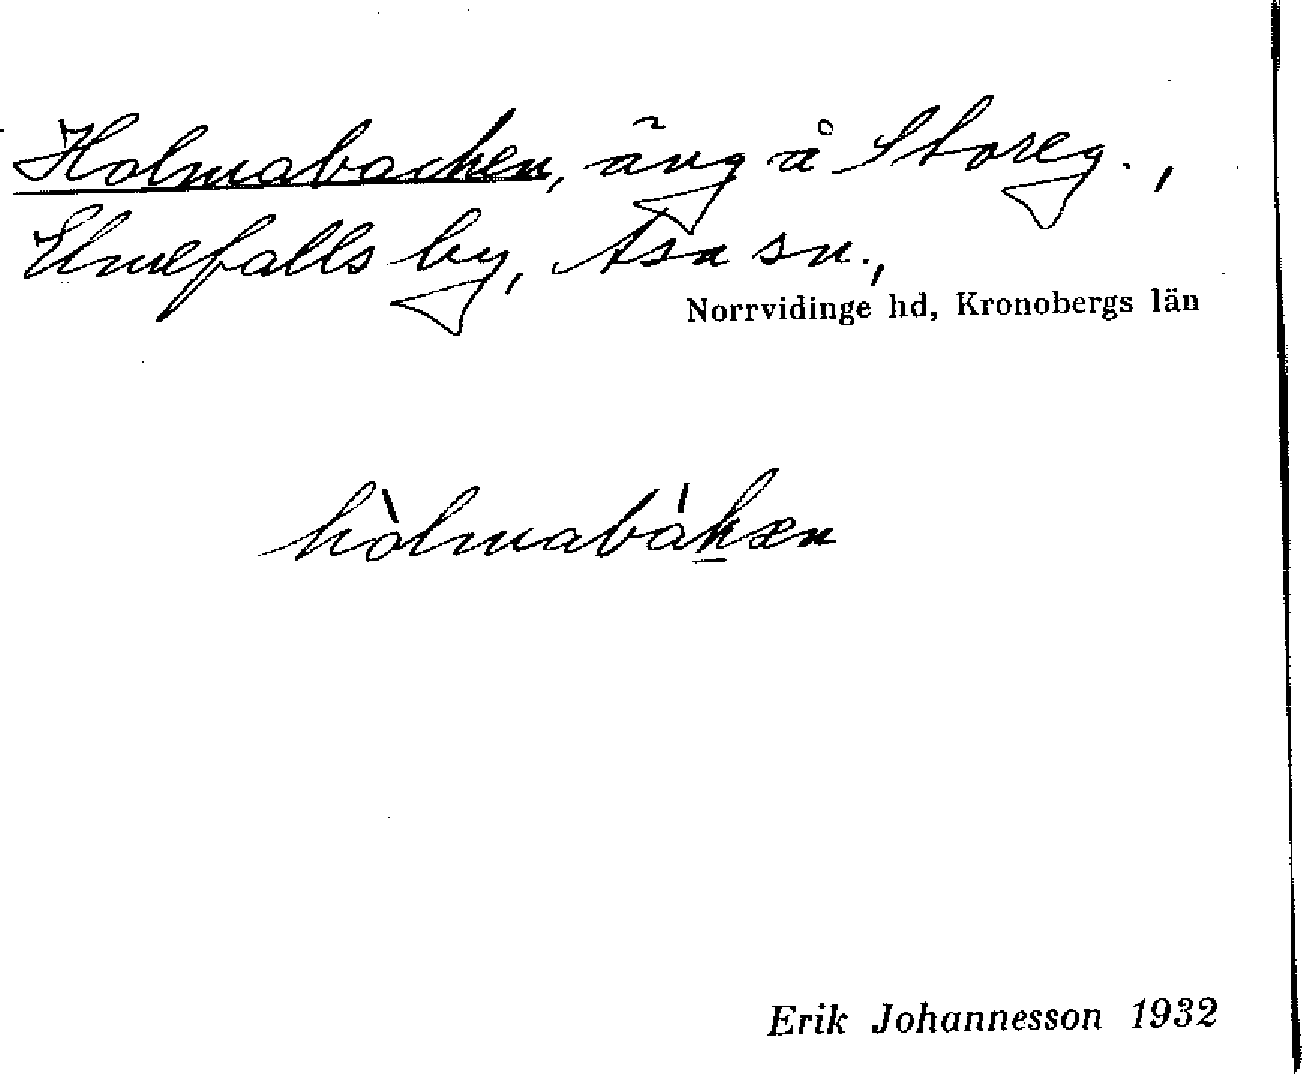 Holmabacken, äng å Storeg.,
Elmefalls by, Asa sn.,
Norrvidinge hd, Kronobergs län
hòlmabákæn
Erik Johannesson 1932